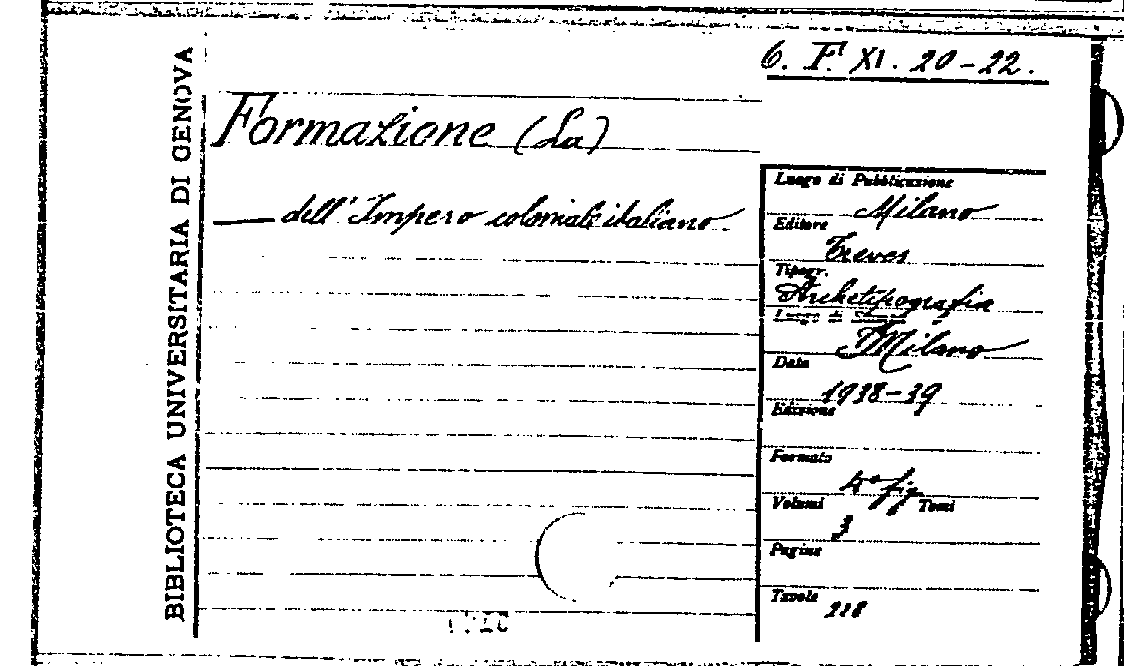 6. F. XI. 20-22.
BIBLIOTECA UNIVERSITARIA DI GENOVA
Formazione (La)
—— dell' Impero coloniale italiano.
Luogo di Pubblicazione
Milano
Editore
Treves
Tipogr.
Archetipografia
Luogo di Stampa
Milano
Data
1938-39
Edizione
Formato
4° fig
Volumi Tomi
3
Pagine
Tavole
218